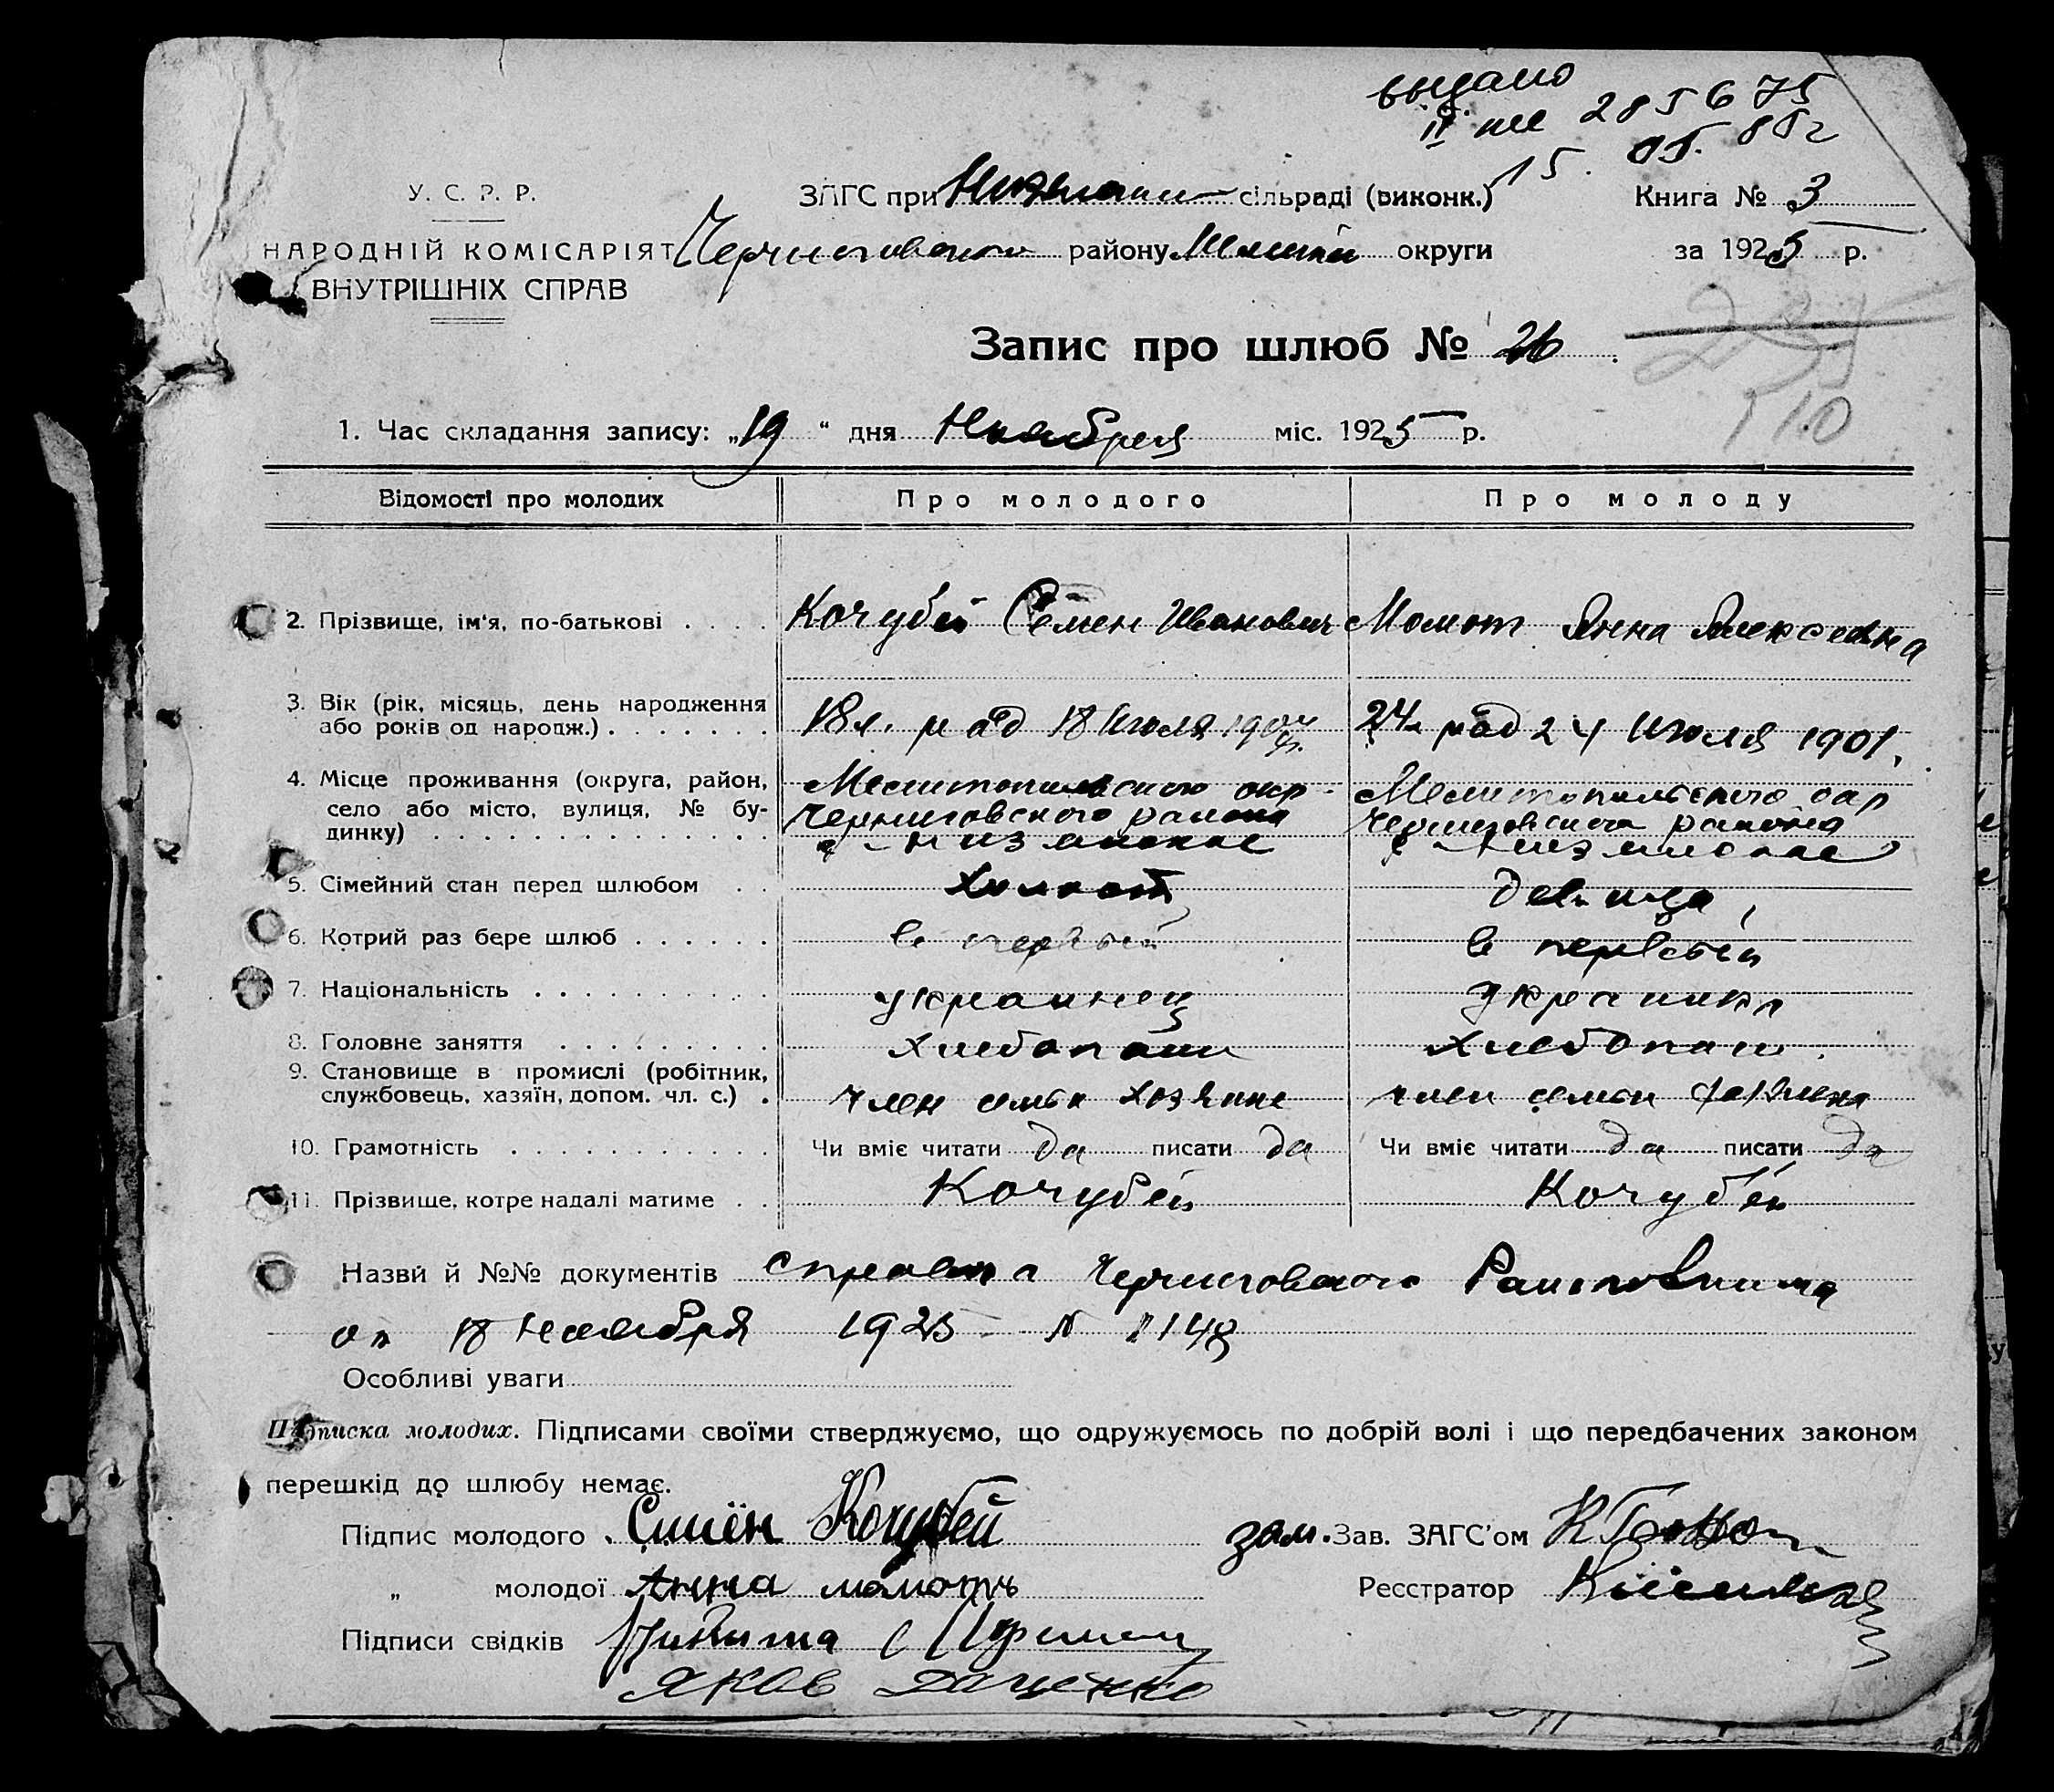 выдано
II 285675
15. 05. 85г
У. С. Р. Р.
ЗАГС при сільраді (виконк.) Книга № 3
НАРОДНІЙ КОМІСАРІЯТ Черниговского району округи за 1925 р.
ВНУТРІШНІХ СПРАВ
Запис про шлюб № 26
110
1. Час складання запису: „19“ дня Ноября міс. 1925 р.
Відомості про молодих Про молодого Про молоду
2. Прізвище, ім'я, по-батькові Кочубей Семен Иванович Момот Анна Алексеевна
3. Вік (рік, місяць, день народження
або років од народж.) 18л. род 18 Июля 24 род 24 Июля 1901.
4. Місце проживання (округа, район, Мелитопольского окр Мелитопольского окр
село або місто, вулиця, № бу- Черниговского района Черниговского района
динку)
5. Сімейний стан перед шлюбом холост девица
6. Котрий раз бере шлюб в первый в первый
7. Національність украинец украинка
8. Головне заняття хлебопаш хлебопаш.
9. Становище в промислі (робітник,
службовець, хазяїн, допом. чл. с.) член семьи хозяина член семьи хозяина
10. Грамотність Чи вміє читати да писати да Чи вміє читати да писати да
11. Прізвище, котре надалі матиме Кочубей Кочубей
Назви й №№ документів справка Черниговского
от 18 Ноября 1925 N 1148
Особливі уваги
Підписка молодих. Підписами своїми стверджуємо, що одружуємось по добрій волі і що передбачених законом
перешкід до шлюбу немає.
Підпис молодого Симён Кочубей зам. Зав. ЗАГС'ом
„ молодої Анна момотъ Реєстратор
Підписи свідків Никита
Яков Даценко